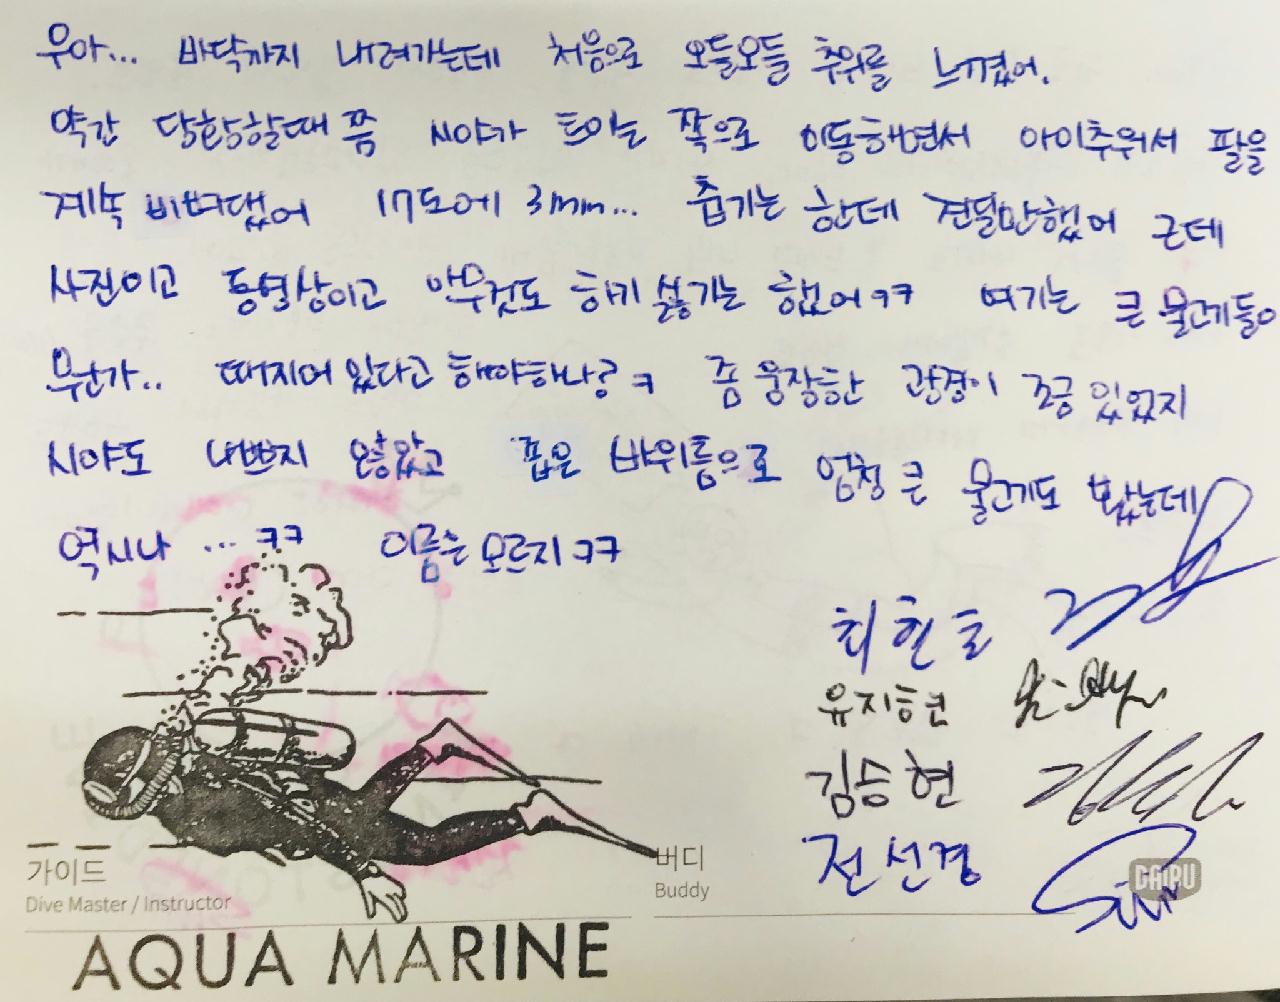 우아... 바닥까지 내려가는데 처음으로 오들오들 추위를 느꼈어.
약간 당황할때 쯤 시야가 트이는 쪽으로 이동해면서 아이추워서 팔을
계속 비벼댔어 17도에 3mm... 춥기는 한데 견딜만했어 근데
사진이고 동영상이고 아무것도 하기 싫기는 했어ㅋㅋ 여기는 큰 물고기들이
무언가.. 때지어 있다고 해야하나? ㅋ 좀 웅장한 광경이 조금 있었지
시야도 나쁘지 않았고 좁은 바위틈으로 엄청 큰 물고기도 봤는데
역시나 ... ㅋㅋ 이름은 모르지 ㅋㅋ
최현호
유지현
김승현
전선경
가이드
Dive Master / Instructor
버디
Buddy
DAIPU
AQUA MARINE